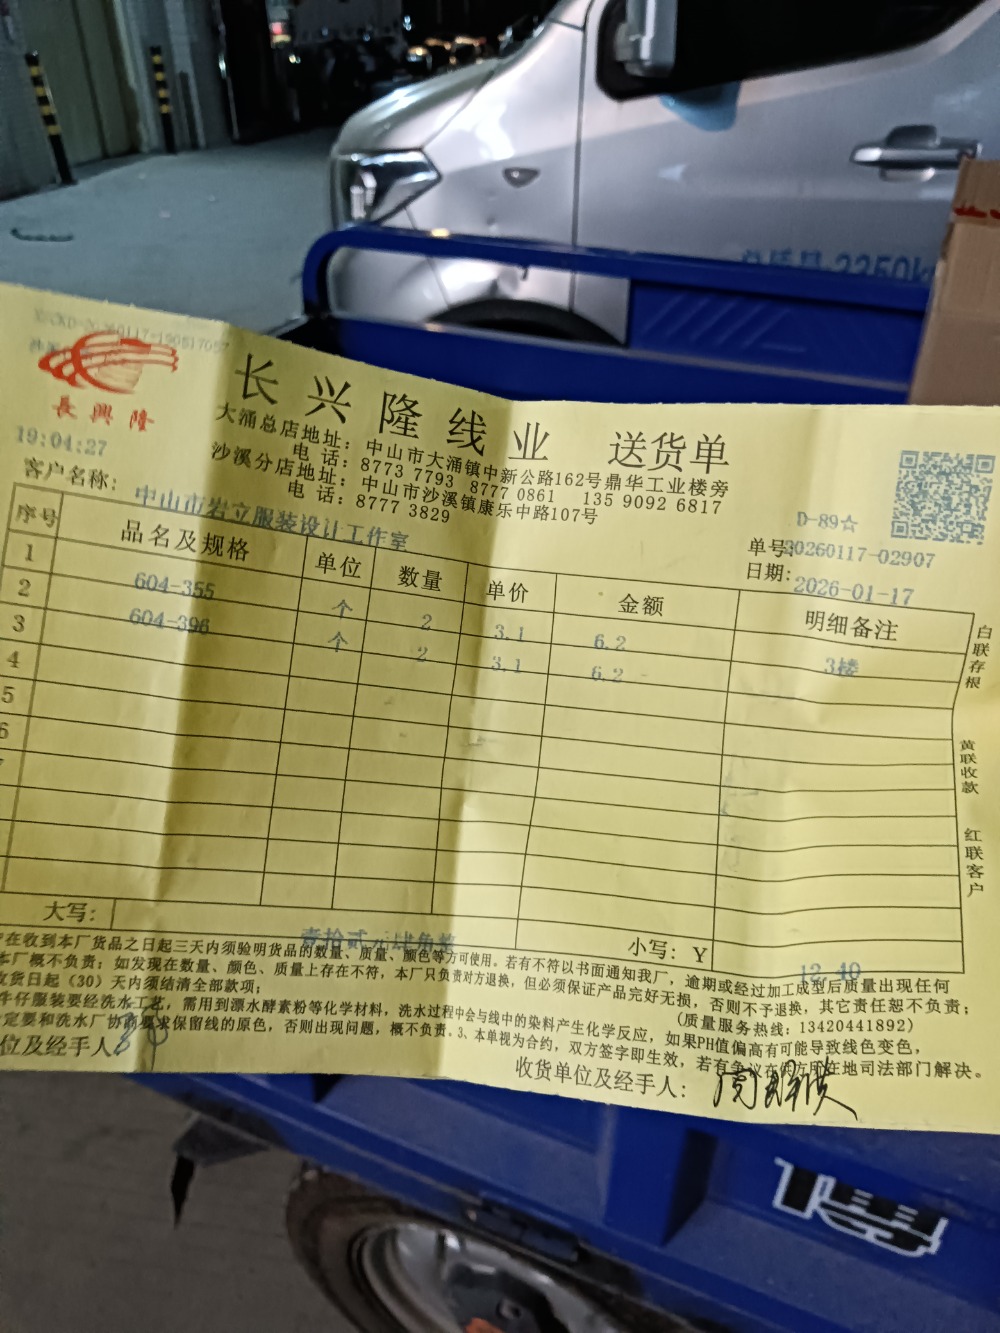 長興隆
19:04:27
长兴隆线业 送货单
大涌总店地址：中山市大涌镇中新公路162号鼎华工业楼旁
电 话：8773 7793 8777 0861 135 9092 6817
沙溪分店地址：中山市沙溪镇康乐中路107号
电 话：8777 3829
D-89☆
客户名称：中山市岩立服装设计工作室
单号：20260117-02907
日期：2026-01-17
序号 品名及规格 单位 数量 单价 金额 明细备注
1 604-355 个 2 3.1 6.2 3楼
2 604-396 个 2 3.1 6.2
3
4
5
6
白联存根
黄联收款
红联客户
大写：壹拾贰元肆角整 小写：Y 12.40
在收到本厂货品之日起三天内须验明货品的数量、质量、颜色等方可使用。若有不符以书面通知我厂，逾期或经过加工成型后质量出现任何
本厂概不负责；如发现在数量、颜色、质量上存在不符，本厂只负责对方退换，但必须保证产品完好无损，否则不予退换，其它责任恕不负责；
收货日起（30）天内须结清全部款项；
(质量服务热线：13420441892)
牛仔服装要经洗水工艺，需用到漂水酵素粉等化学材料，洗水过程中会与线中的染料产生化学反应，如果PH值偏高有可能导致线色变色，
定要和洗水厂协商要求保留线的原色，否则出现问题，概不负责。3、本单视为合约，双方签字即生效，若有争议在供方所在地司法部门解决。
位及经手人
收货单位及经手人：
总质量:2250k